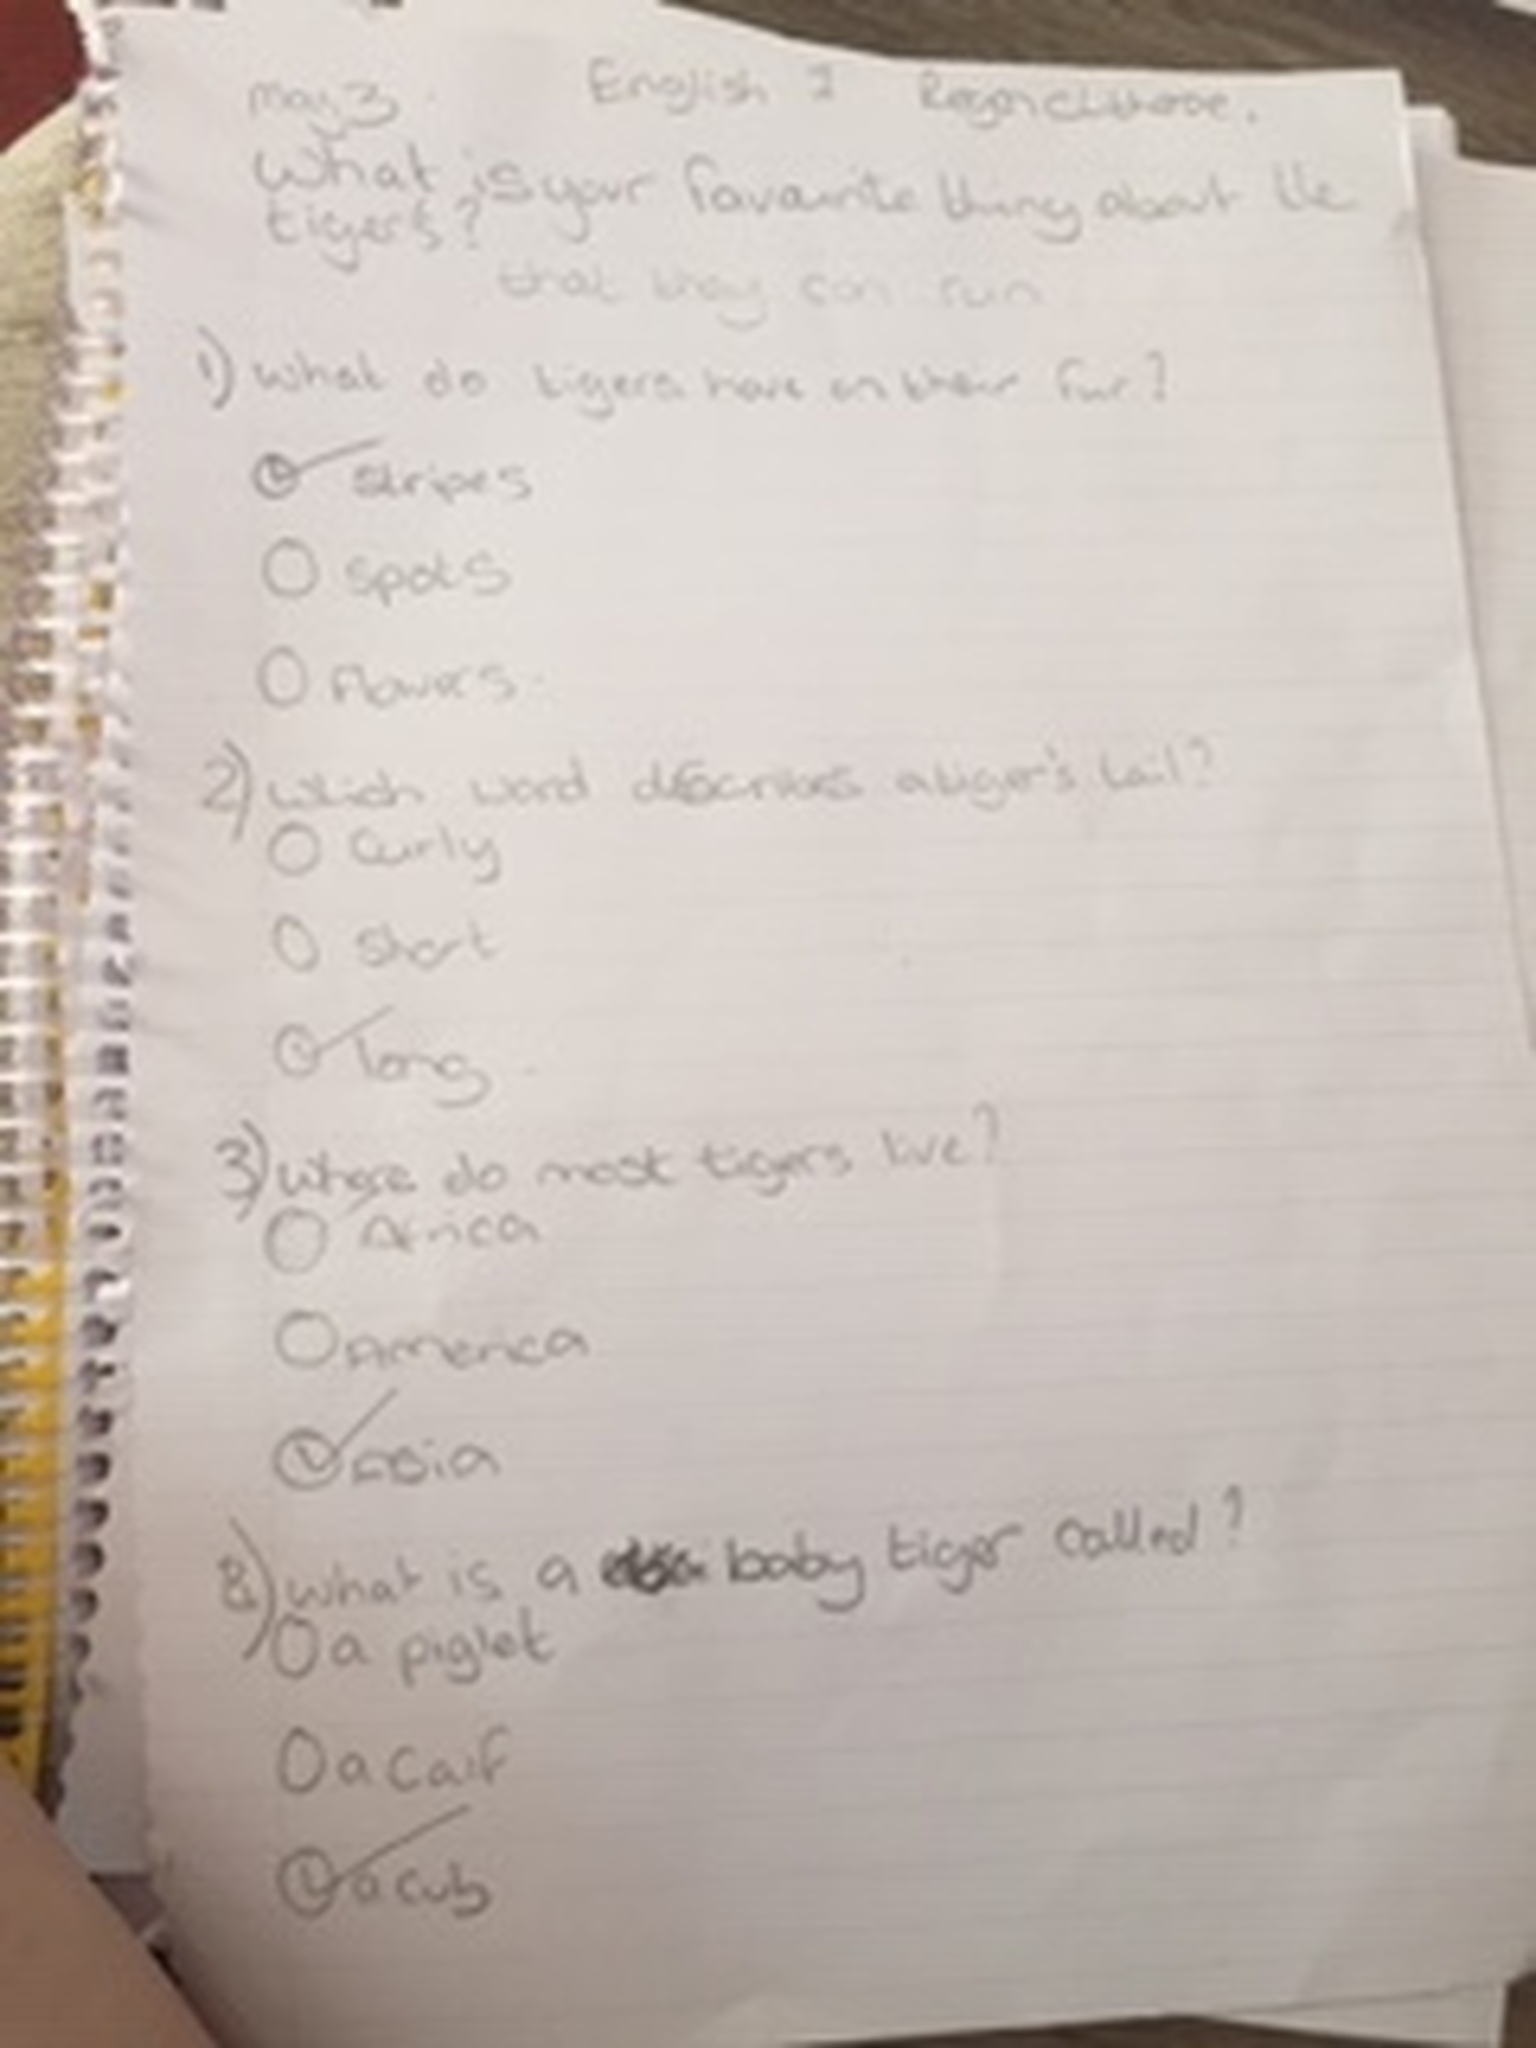 May 3 English 2
What is your favourite thing about the
tigers?
that they can run
1) What do tigers have on their fur?
stripes
spots
flowers.
2) Which word describes a tiger's tail?
Curly
short
long.
3) Where do most tigers live?
Africa
America
Asia
8) What is a baby tiger called?
a piglet
a calf
a cub